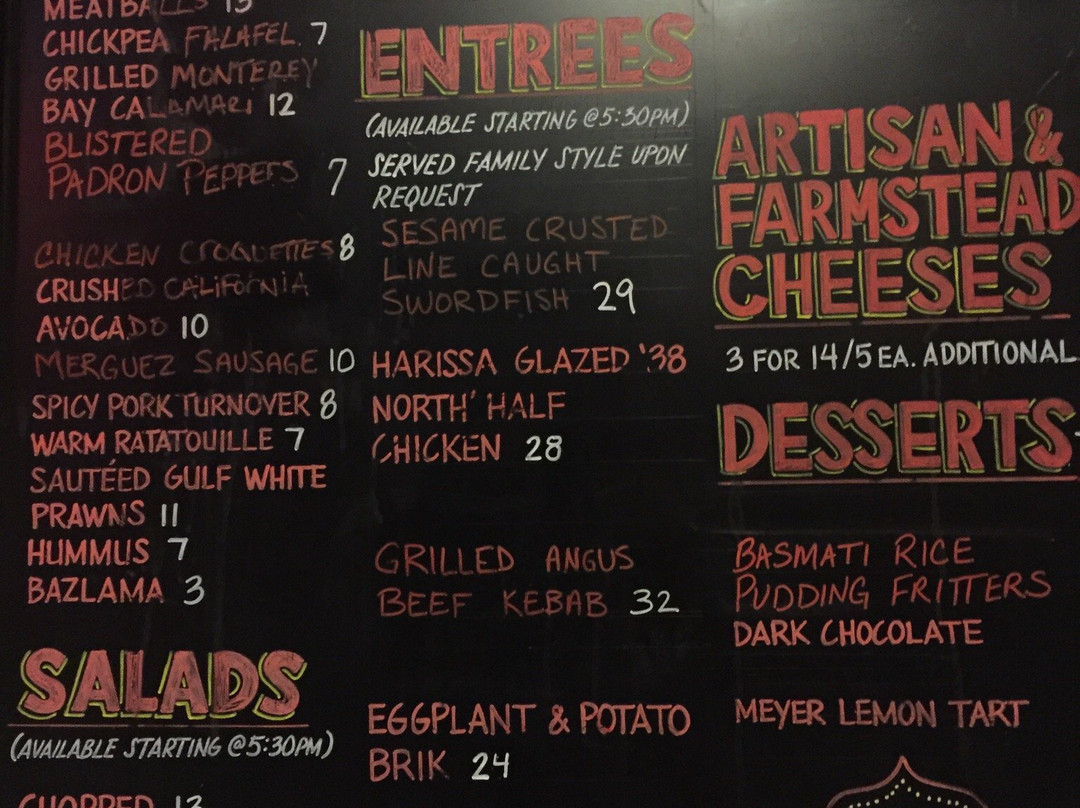 MEATBALLS 13
CHICKPEA FALAFEL 7
GRILLED MONTEREY
BAY CALAMARI 12
BLISTERED
PADRON PEPPERS 7
CHICKEN CROQUETTES 8
CRUSHED CALIFORNIA
AVOCADO 10
MERGUEZ SAUSAGE 10
SPICY PORK TURNOVER 8
WARM RATATOUILLE 7
SAUTÉED GULF WHITE
PRAWNS 11
HUMMUS 7
BAZLAMA 3
SALADS
(AVAILABLE STARTING @5:30PM)
CHOPPED 13
ENTREES
(AVAILABLE STARTING @5:30PM)
SERVED FAMILY STYLE UPON
REQUEST
SESAME CRUSTED
LINE CAUGHT
SWORDFISH 29
HARISSA GLAZED '38
NORTH' HALF
CHICKEN 28
GRILLED ANGUS
BEEF KEBAB 32
EGGPLANT & POTATO
BRIK 24
ARTISAN &
FARMSTEAD
CHEESES
3 FOR 14/5 EA. ADDITIONAL
DESSERTS
BASMATI RICE
PUDDING FRITTERS
DARK CHOCOLATE
MEYER LEMON TART